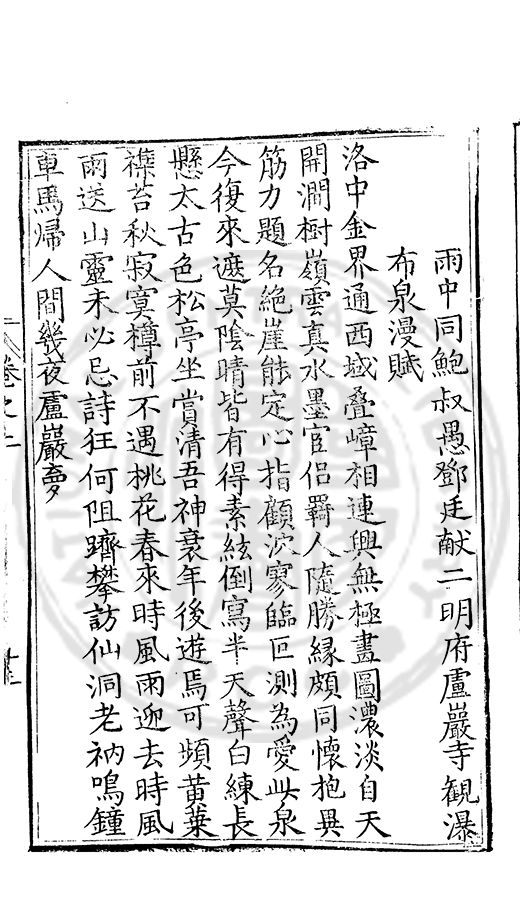 雨中同鮑叔愚鄧廷献二明府盧巖寺観瀑
布泉漫賦
洛中金界通西域叠嶂相連興無極畫圖濃淡自天
開澗樹嶺雲真水墨宦侣羇人隨勝縁頗同懷抱異
筋力題名絶崖能定心指顧泬寥臨叵測為愛此泉
今復來遮莫陰晴皆有得素絃倒寫半天聲白練長
懸太古色松亭坐賞清吾神衰年後遊焉可頻黄葉
襟苔秋寂寞樽前不遇桃花春來時風雨迎去時風
雨送山靈未必忌詩狂何阻躋攀訪仙洞老衲鳴鐘
車馬帰人間幾夜盧巖夢
卷之